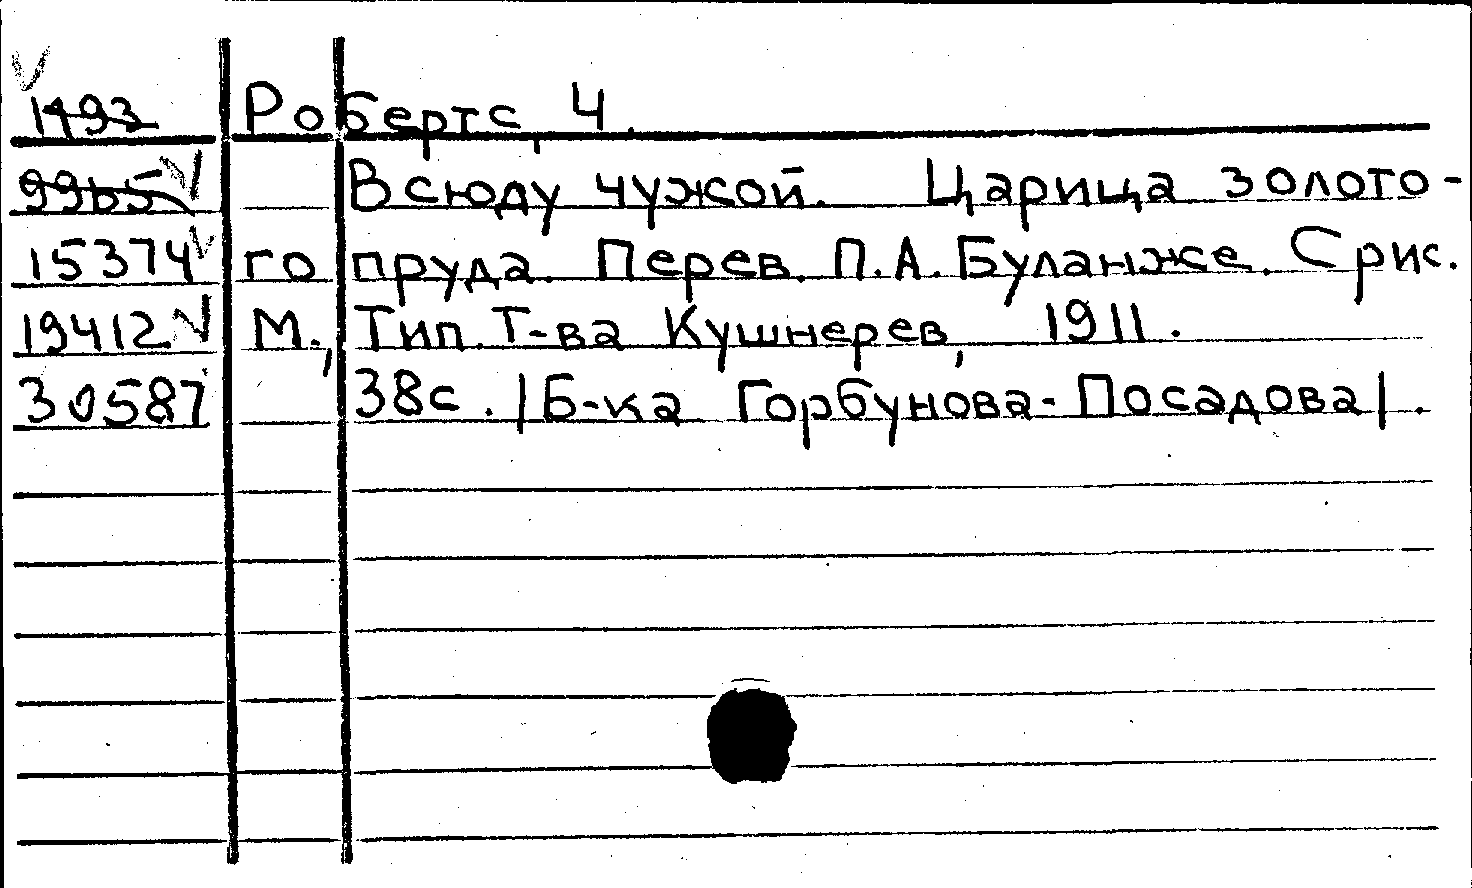 1493 Робертс, Ч.
9965 Всюду чужой. Царица золото-
15374 го пруда. Перев. П.А.Буланже. С рис.
19412 М., Тип. Т-ва Кушнерев, 1911.
30587 38с. |Б-ка Горбунова-Посадова|.